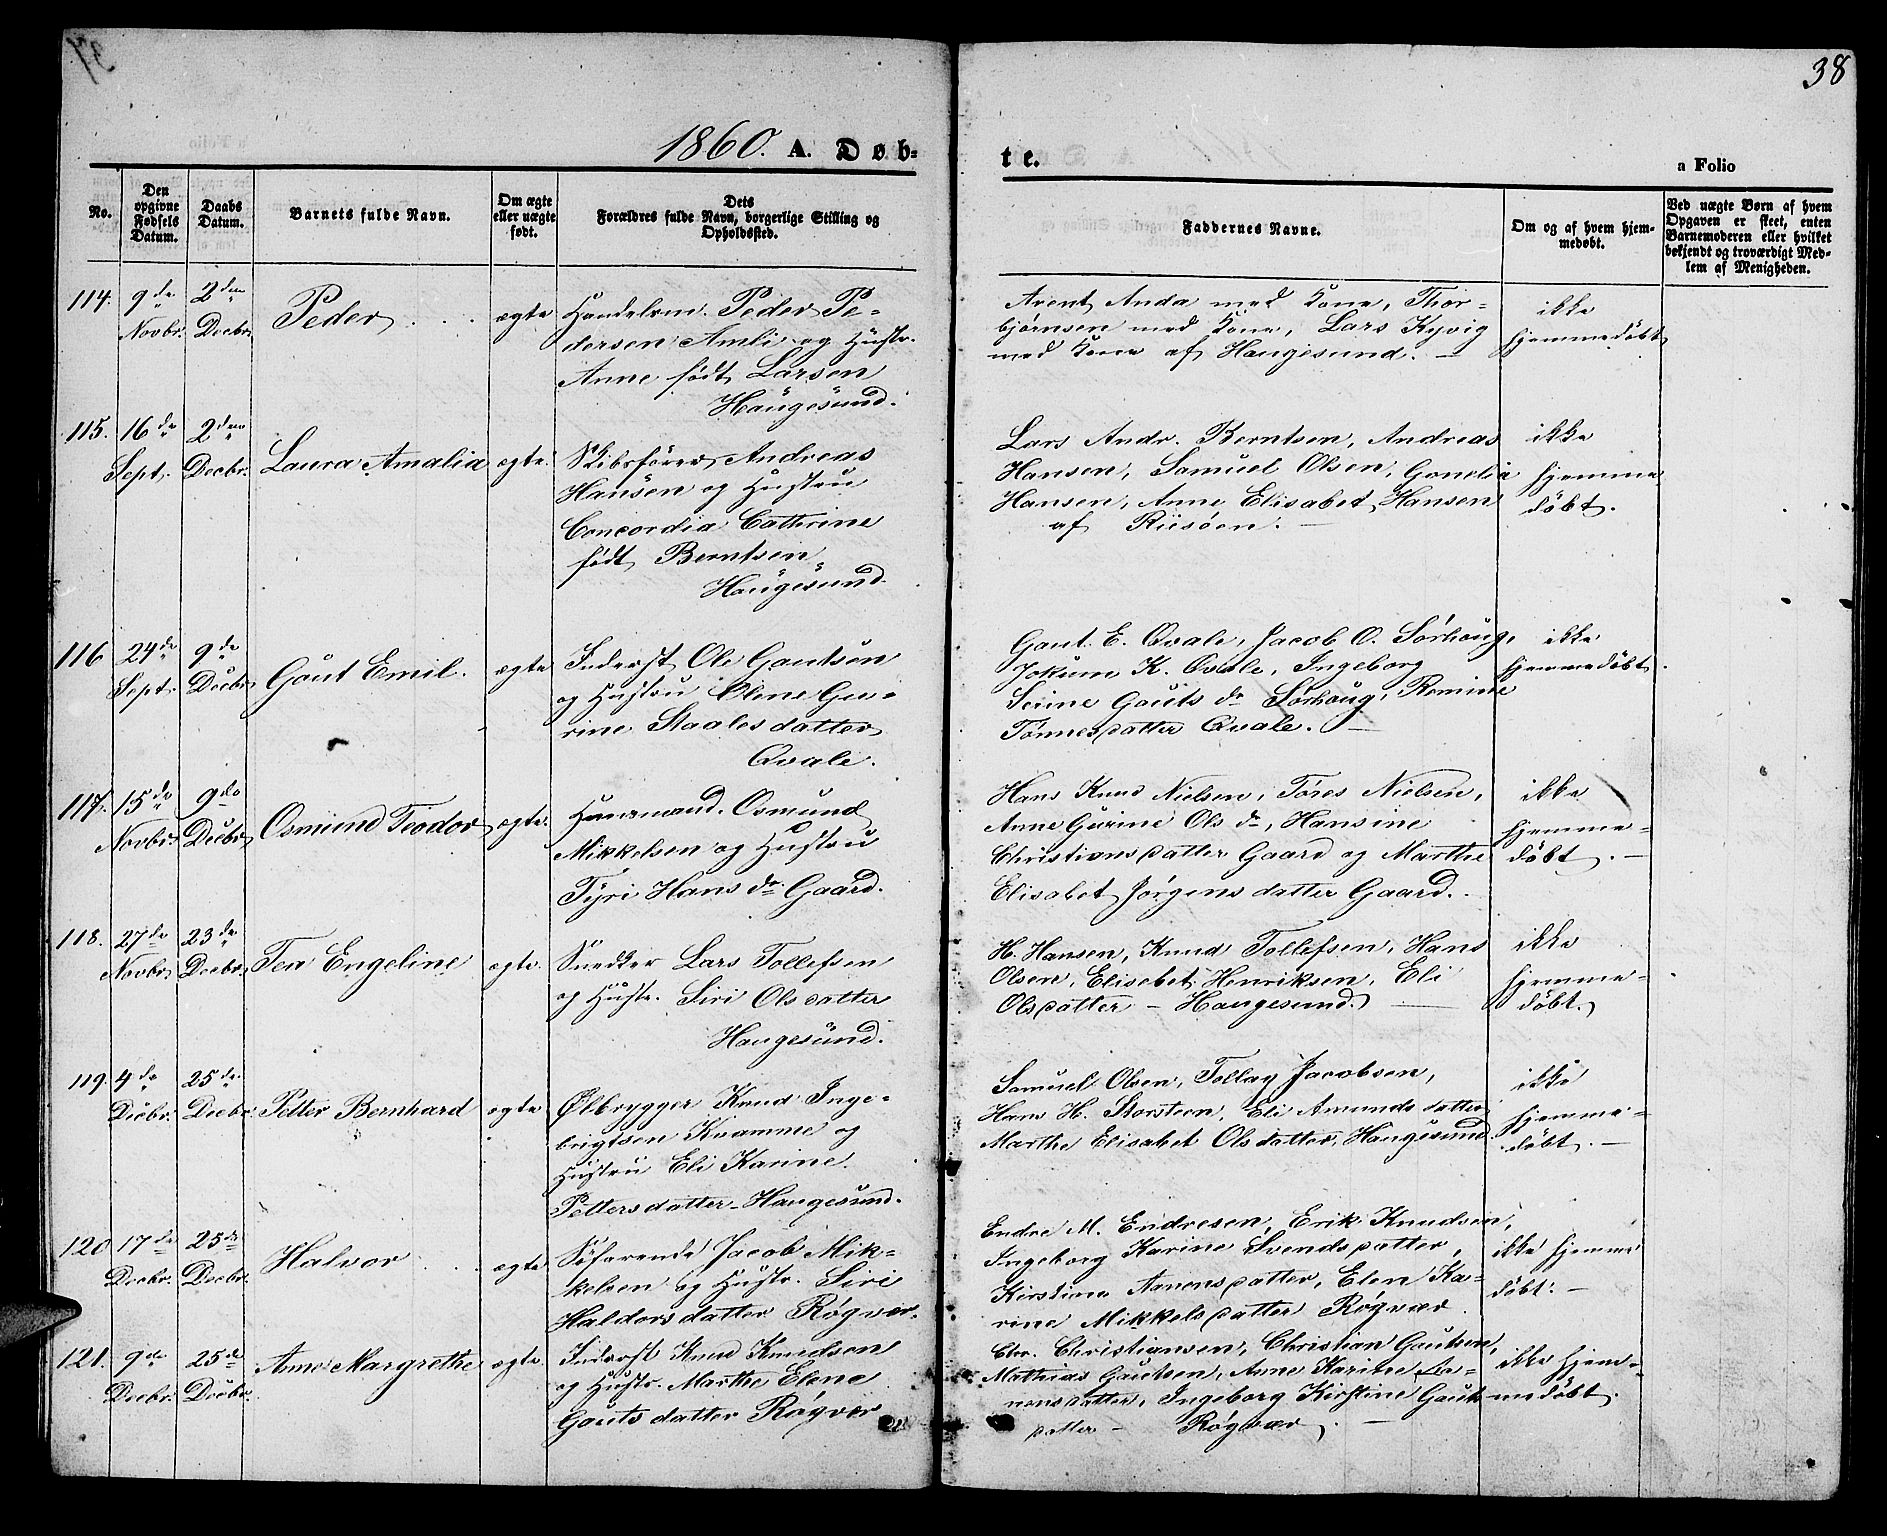 38
1860. A. Døb-
te.
a Folio
No.
Den opgivne Fødsels Datum.
Daabs Datum.
Barnets fulde Navn.
Om ægte eller uægte født.
Dets
Forældres fulde Navn, borgerlige Stilling og
Opholdssted.
Faddernes Navne.
Om og af hvem hjem-
medøbt.
Ved uægte Børn af hvem
Opgaven er skeet, enten
Barnemoderen eller hvilket
bekjendt og troværdigt Med-
lem af Menigheden.
114. 9de Novbr. 2den Decbr. Peder ægte
Handelsm. Peder Pe-
dersen Amli og Hustr.
Anne født Larsen
Haugesund.
Arent Anda med Kone, Thor-
bjørnsen med Kone, Lars Kyvig
med Kone af Haugesund. —
ikke
hjemmedøbt
115. 16de Sept. 2den Decbr. Laura Amalia ægte.
Skibsfører Andreas
Hansen og Hustru
Concordia Cathrine
født Berntsen
Haugesund.
Lars Andr. Berntsen, Andreas
Hansen, Samuel Olsen, Gonelia
Hansen, Anne Elisabet Hansen
af Riisøen. —
ikke
hjemme
døbt.
116 24de Sept. 9de Decbr. Gaut Emil. ægte
Inderst Ole Gautsen
og Hustru Oline Gu-
rine Staalesdatter
Qvale.
Gaut E. Qvale, Jacob O. Sørhoug,
Jokum K. Qvale, Ingeborg
Serine Gauts dr Sørhaug, Romine
Tønnesdatter Qvale. —
ikke
hjemmedøbt.
117. 15de Novbr. 9de Decbr. Osmund Teodor ægte.
Huusmand. Osmund
Mikkelsen og Hustru
Tyri Hans dr Gaard.
Hans Knud Nielsen, Tøres Nielsen,
Anne Gurine Ols dr, Hansine
Christiansdatter Gaard og Marthe
Elisabet Jørgensdatter Gaard.
ikke
hjemme-
døbt. —
118. 27de Novbr. 23de Decbr. Tea Engeline ægte.
Snedker Lars Tollefsen
og Hustr. Siri Olsdatter
Haugesund.
H. Hansen, Knud Tollefsen, Hans
Olsen, Elisabet Henriksen, Eli
Olsdatter — Haugesund. —
ikke
hjemme-
døbt.
119. 4de Decbr. 25de Decbr. Petter Bernhard ægte
Ølbrygger Knud Inge-
brigtsen Kvamme og
Hustru Eli Karine
Pettersdatter — Haugesund.
Samuel Olsen, Tollag Jacobsen,
Hans H. Storsteen, Eli Amundsdatter,
Marthe Elisabet Olsdatter, Haugesund
ikke
hjemme-
døbt. —
120 17de Decbr. 25de Decbr. Halvor ægte
Søfarende Jacob Mik-
kelsen og Hustr. Siri
Haldorsdatter Røgvær.
Endre M. Endresen, Erik Knudsen,
Ingeborg Karine Svendsdatter,
Kirstine Aanensdatter, Elen Ka-
rine Mikkelsdatter Røgvær.
ikke hjemme
døbt. —
121. 9de Decbr. 25de Decbr. Anne Margrethe ægte.
Inderst Knud Knudsen
og Hustr. Marthe Elene
Gautsdatter Røgvær
Chr. Christiansen, Christian Gautsen,
Mathias Gautsen, Anne Karine Aa-
nensdatter, Ingeborg Kirstine Gauts
datter — Røgvær. —
ikke hjem-
medøbt.